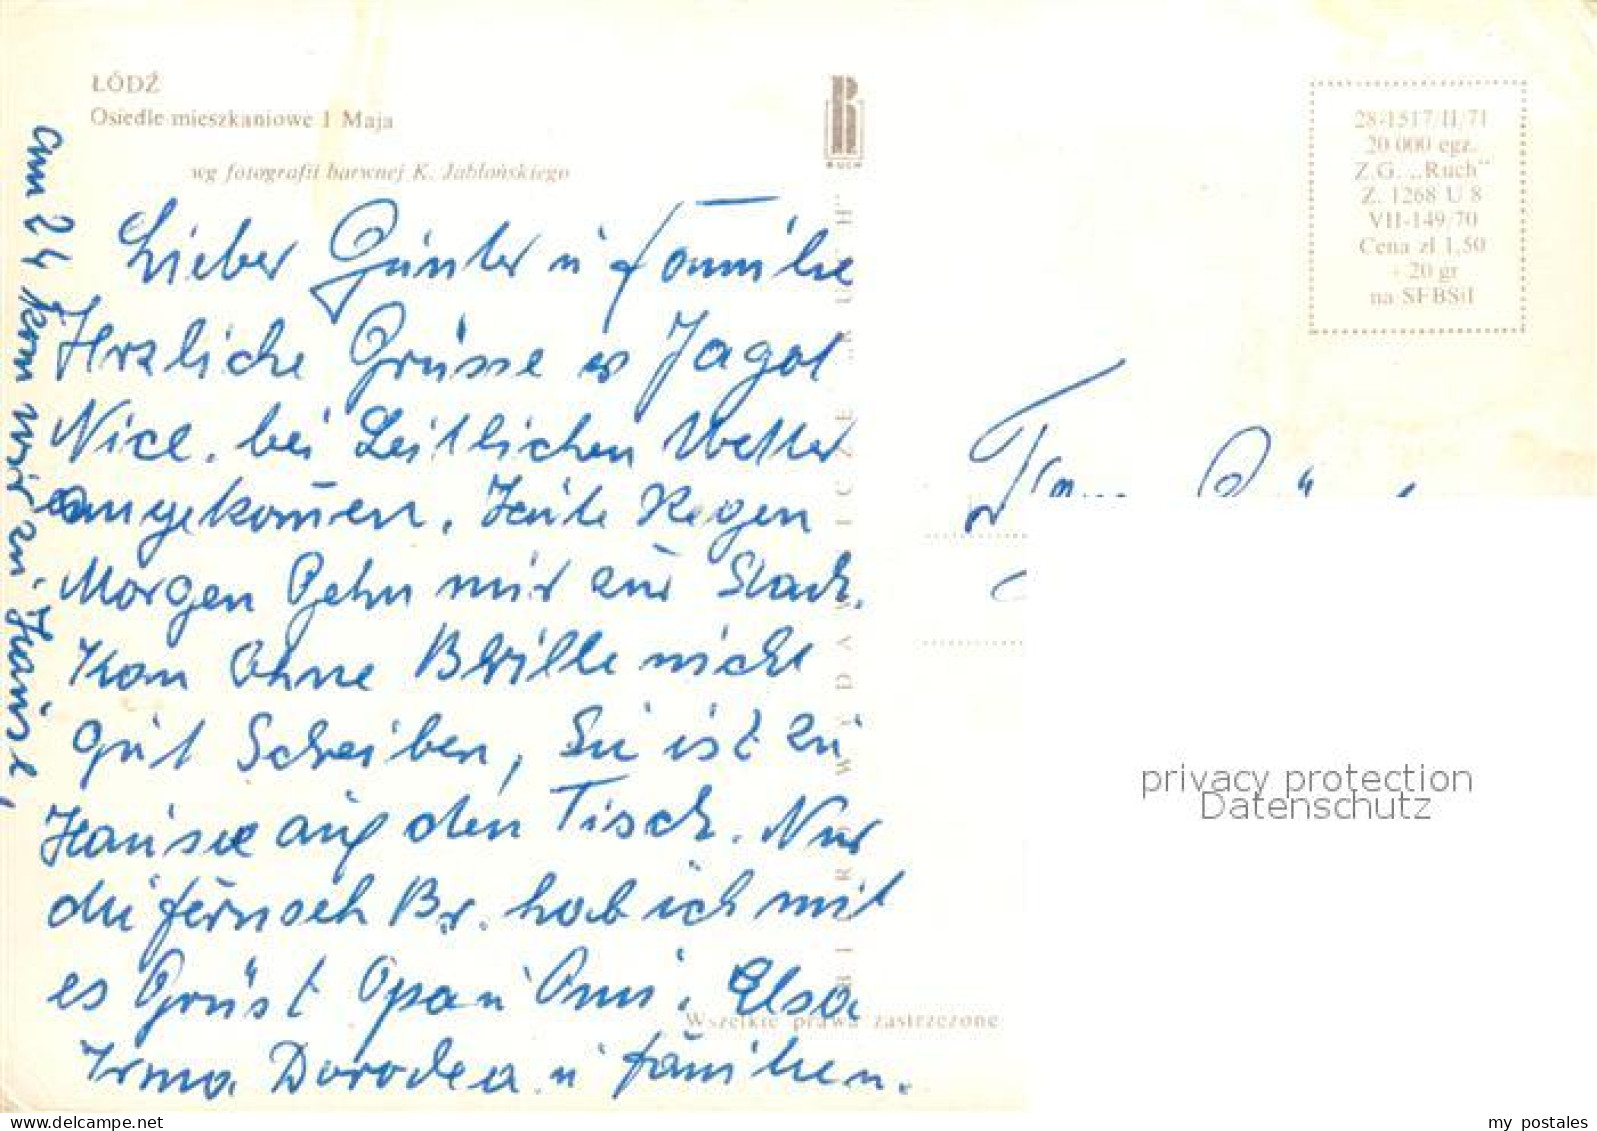 ŁÓDŹ
Osiedle mieszkaniowe 1 Maja
wg fotografii barwnej K. Jabłońskiego
RUCH
BIURO WYDAWNICZE „RUCH"
28-1517/II/71
20 000 egz.
Z.G. „Ruch"
Z. 1268 U 8
VII-149/70
Cena zł 1,50
+ 20 gr
na SFBSiI
Lieber Günter u Familie
Herzliche Grüsse
Nice. bei Leitlichen Wetter
angekomen. Heute Regen
Morgen Gehn mir zur Stadt.
Kan Ohne Brille nicht
Gut Schreiben, Sie ist zu
Hause auf den Tisch. Nur
die fernseh Br. hab ich mit
es Grüst Opa u Omi. Elsa
Irma Dorodea u familien.
am 24 kom wir zu Hause,
Wszelkie prawa zastrzeżone
privacy protection
Datenschutz
www.delcampe.net
my_postales